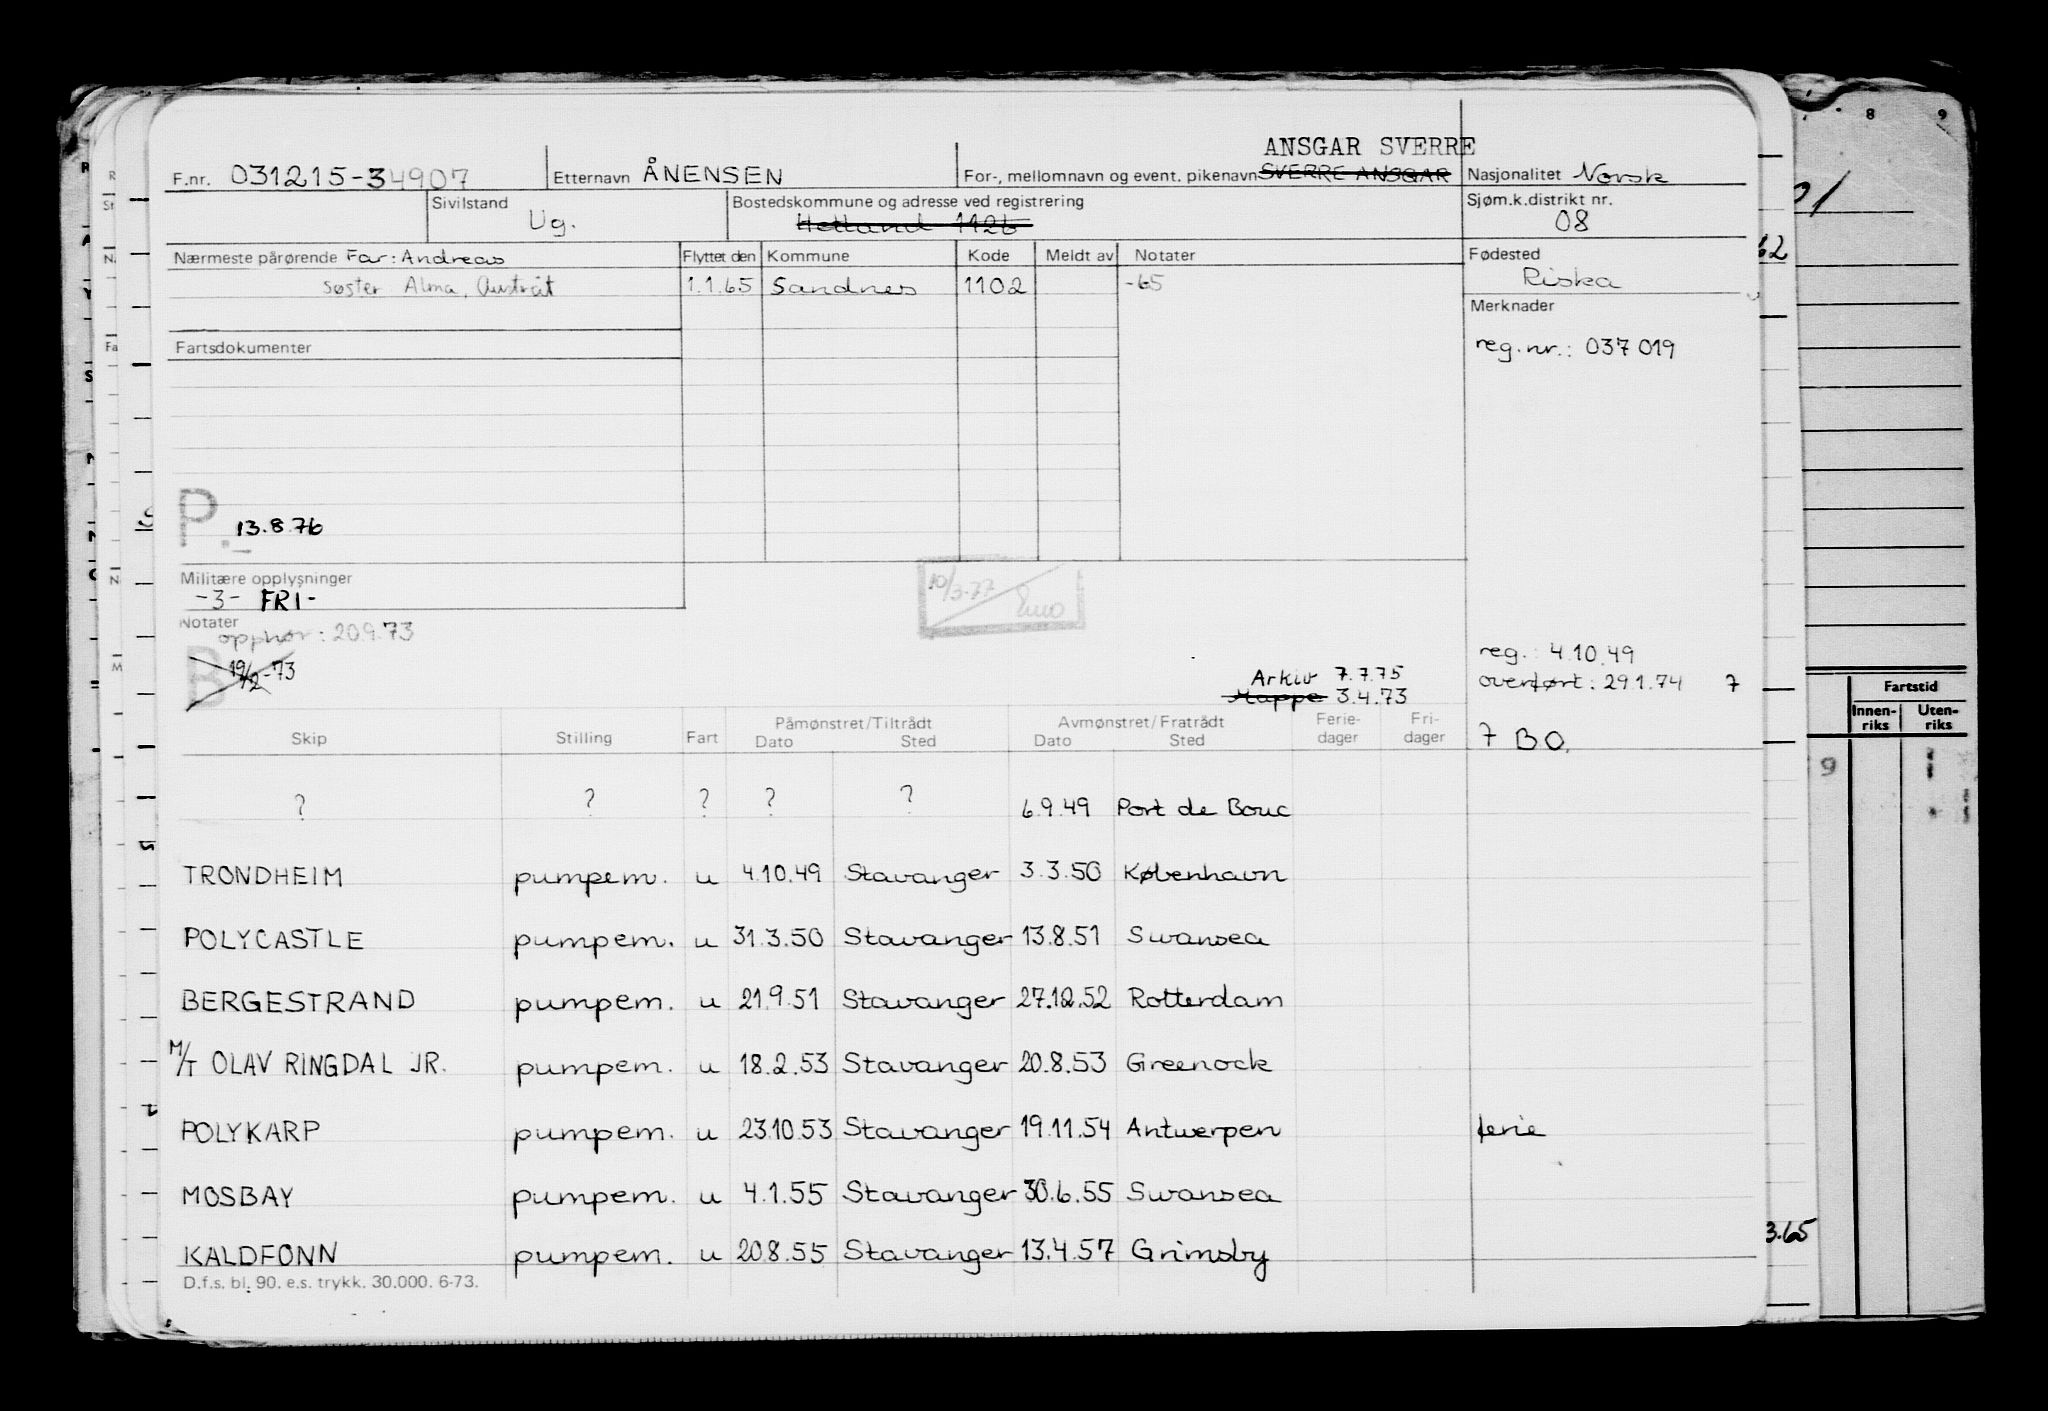 ANSGAR SVERRE
F.nr. 031215-34907 Etternavn ÅNENSEN For-, mellomnavn og event. pikenavn SVERRE ANSGAR Nasjonalitet Norsk
Sivilstand Ug. Bostedskommune og adresse ved registrering Hetland 1126 Sjøm.k.distrikt nr. 08
Nærmeste pårørende Far: Andreas Flyttet den Kommune Kode Meldt av Notater Fødested Riska
søster Alma, Austråt 1.1.65 Sandnes 1102 -65
Merknader
Fartsdokumenter
reg.nr.: 037019
P. 13.8.76
Militære opplysninger
-3- FRI-
10/3-77
Notater
opphør: 20.9.73
B 19/2-73
reg.: 4.10.49
Arkiv 7.7.75
overført: 29.1.74 7
Mappe 3.4.73
Skip Stilling Fart Påmønstret/Tiltrådt Dato Sted Avmønstret/Fratrådt Dato Sted Ferie-dager Fri-dager 7 BO.
? ? ? ? ? 6.9.49 Port de Bouc
TRONDHEIM pumpem. u 4.10.49 Stavanger 3.3.50 København
POLYCASTLE pumpem. u 31.3.50 Stavanger 13.8.51 Swansea
BERGESTRAND pumpem. u 21.9.51 Stavanger 27.12.52 Rotterdam
M/T OLAV RINGDAL JR. pumpem. u 18.2.53 Stavanger 20.8.53 Greenock
POLYKARP pumpem. u 23.10.53 Stavanger 19.11.54 Antwerpen ferie
MOSBAY pumpem. u 4.1.55 Stavanger 30.6.55 Swansea
KALDFONN pumpem. u 20.8.55 Stavanger 13.4.57 Grimsby
D.f.s. bl. 90. e.s. trykk. 30.000. 6-73.
8 9
62
Fartstid
Innen-riks Uten-riks
9
3.65